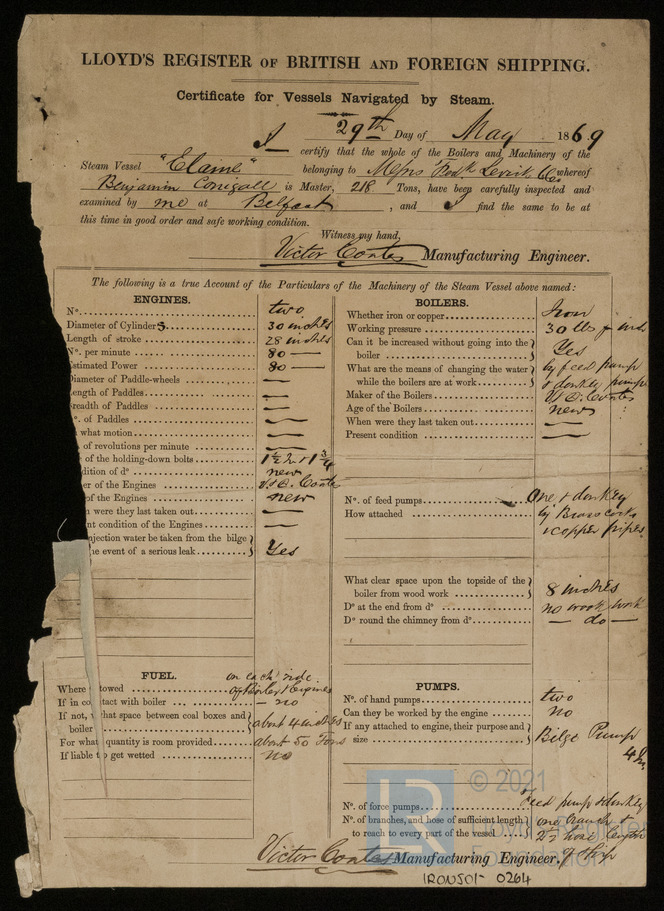 LLOYD'S REGISTER OF BRITISH AND FOREIGN SHIPPING.
Certificate for Vessels Navigated by Steam.
29th Day of May 1869
I certify that the whole of the Boilers and Machinery of the
Steam Vessel "Elaine" belonging to Messrs Fredk Levick & Co whereof
Benjamin is Master, 218 Tons, have been carefully inspected and
examined by me at Belfast, and I find the same to be at
this time in good order and safe working condition.
Witness my hand,
Victor Coates Manufacturing Engineer.
The following is a true Account of the Particulars of the Machinery of the Steam Vessel above named:
ENGINES.
No. two
Diameter of Cylinders. 30 inches
Length of stroke 28 inches
No. per minute 80 —
Estimated Power 80 —
Diameter of Paddle-wheels —
Length of Paddles —
Breadth of Paddles —
No. of Paddles —
what motion —
of revolutions per minute —
of the holding-down bolts 1½ In & 1¾
dition of do new
er of the Engines V & C. Coates
of the Engines new
n were they last taken out —
nt condition of the Engines —
njection water be taken from the bilge
he event of a serious leak Yes
FUEL.
Where stowed on each side
of Boiler & Engines
If in contact with boiler — no
If not, what space between coal boxes and
boiler about 4 inches
For what quantity is room provided about 50 Tons
If liable to get wetted no
BOILERS.
Whether iron or copper Iron
Working pressure 30 lbs pr inch
Can it be increased without going into the
boiler Yes
What are the means of changing the water by feed pump
while the boilers are at work & donkey pumps
Maker of the Boilers V & C. Coates
Age of the Boilers new
When were they last taken out —
Present condition —
No. of feed pumps One & donkey
How attached by Brass cocks
& copper pipes
What clear space upon the topside of the
boiler from wood work 8 inches
Do at the end from do no wood work
Do round the chimney from do — do —
PUMPS.
No. of hand pumps two
Can they be worked by the engine no
If any attached to engine, their purpose and
size Belge Pump
4 In
No. of force pumps Feed pump & donkey
No. of branches, and hose of sufficient length one branch &
to reach to every part of the vessel hose length
of ship
Victor Coates Manufacturing Engineer.
IRON501-0264
© 2021
Lloyd's Register
Foundation
LR